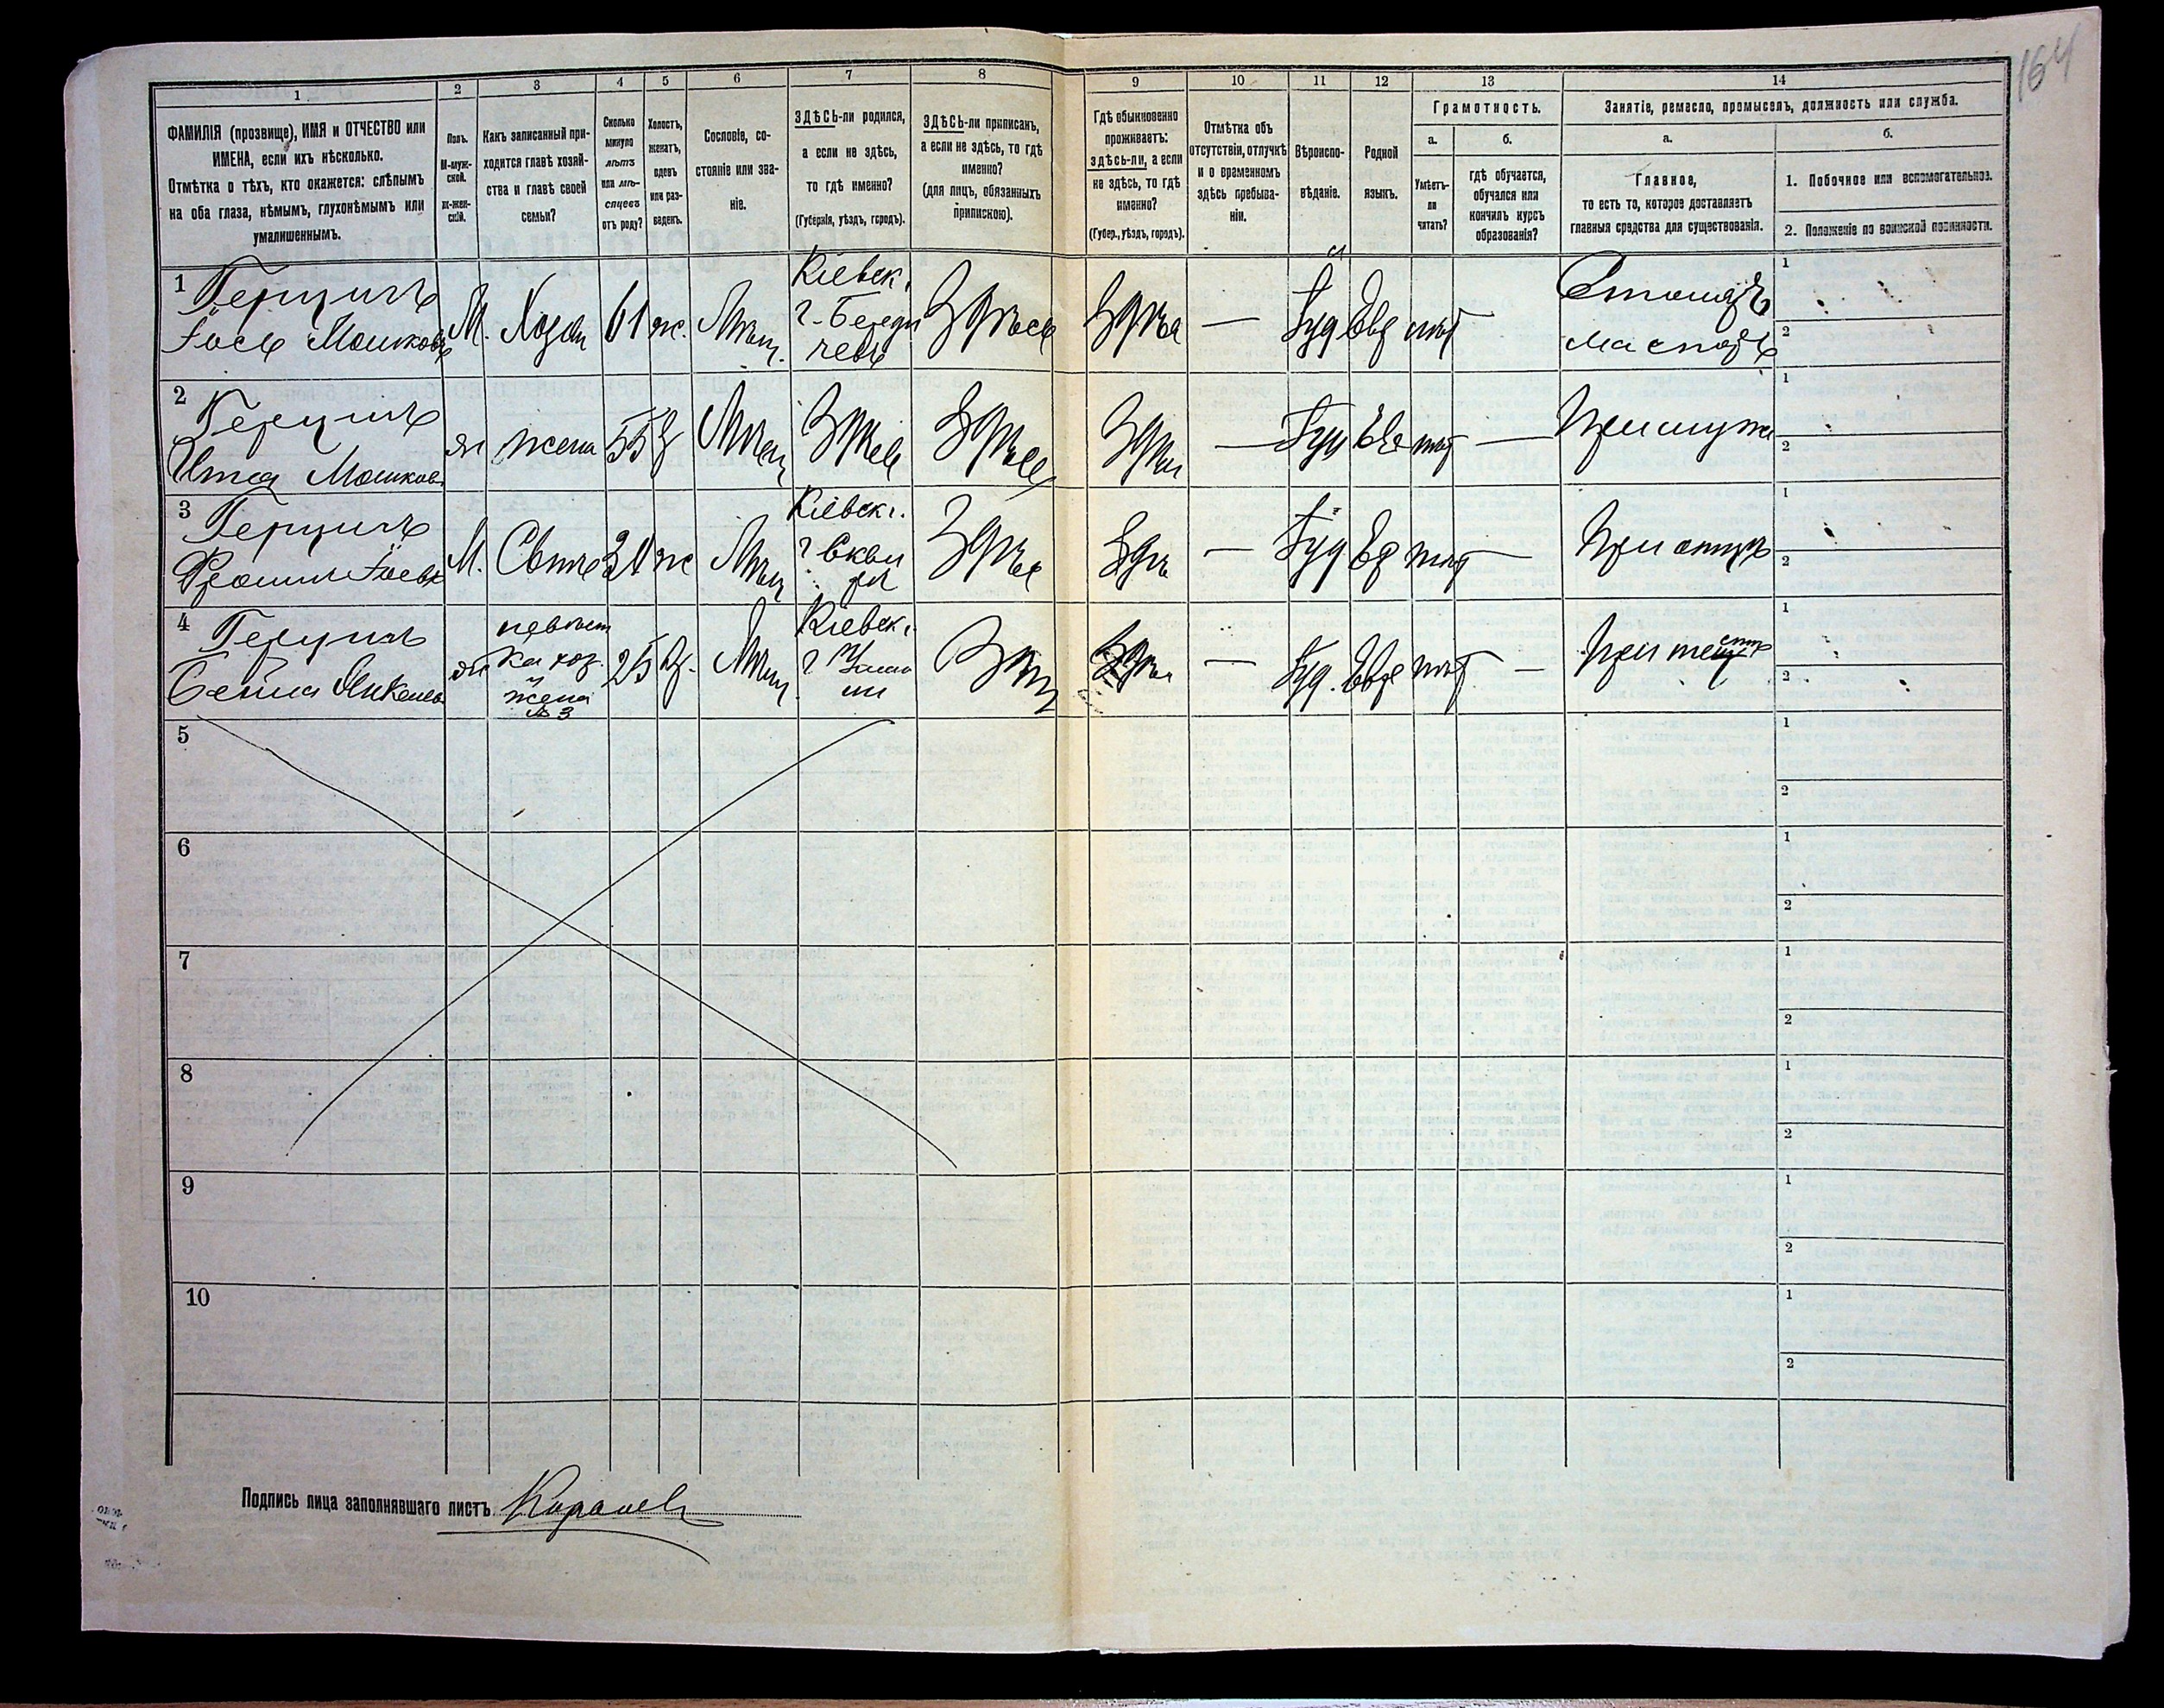 164
1 2 3 4 5 6 7 8 9 10 11 12 13 14
ФАМИЛІЯ (прозвище), ИМЯ и ОТЧЕСТВО или
ИМЕНА, если ихъ нѣсколько.
Отмѣтка о тѣхъ, кто окажется: слѣпымъ
на оба глаза, нѣмымъ, глухонѣмымъ или
умалишеннымъ.
Полъ.
М-муж-
ской.
ж-жен-
скій.
Какъ записанный при-
ходится главѣ хозяй-
ства и главѣ своей
семьи?
Сколько
минуло
лѣтъ
или мѣ-
сяцевъ
отъ роду?
Холостъ,
женатъ,
вдовъ
или раз-
веденъ.
Сословіе, со-
стояніе или зва-
ніе.
ЗДѢСЬ-ли родился,
а если не здѣсь,
то гдѣ именно?
(Губернія, уѣздъ, городъ).
ЗДѢСЬ-ли приписанъ,
а если не здѣсь, то гдѣ
именно?
(для лицъ, обязанныхъ
припискою).
Гдѣ обыкновенно
проживаетъ:
здѣсь-ли, а если
не здѣсь, то гдѣ
именно?
(Губер., уѣздъ, городъ).
Отмѣтка объ
отсутствіи, отлучкѣ
и о временномъ
здѣсь пребыва-
ніи.
Вѣроиспо-
вѣданіе.
Родной
языкъ.
Грамотность.
а.
Умѣетъ-
ли
читать?
б.
гдѣ обучается,
обучался или
кончилъ курсъ
образованія?
Занятіе, ремесло, промыселъ, должность или служба.
а.
Главное,
то есть то, которое доставляетъ
главныя средства для существованія.
б.
1. Побочное или вспомогательное.
2. Положеніе по воинской повинности.
1 Герцинъ
Іось Мошковъ
М. Хозяи 61 ж. Мѣщ.
Кіевск.
г. Берди
чевъ
Здѣсь Здѣсь — Іуд Евр нѣт —
1
2
2 Герцинъ
Мошков
ж жена 55 З Мѣщ Здѣсь Здѣсь Здѣс — Іуд Евр нѣт — При мужѣ
1
2
3 Герцинъ
Іосев
М. Сынъ ж Мѣщ
Кіевск г.
г Скви
ра
Здѣсь Здѣ — Іуд Ев нѣт — При отцѣ
1
2
4 Герцинъ
Сейна Янкелев
ж
невѣст
ка хоз.
и
жена
№ 3
25 З. Мѣщ.
Кіевск г.
г Умани
Здѣс — Іуд. Евр нѣт — При
1
2
5 1
2
6 1
2
7 1
2
8 1
2
9 1
2
10 1
2
Подпись лица заполнявшаго листъ